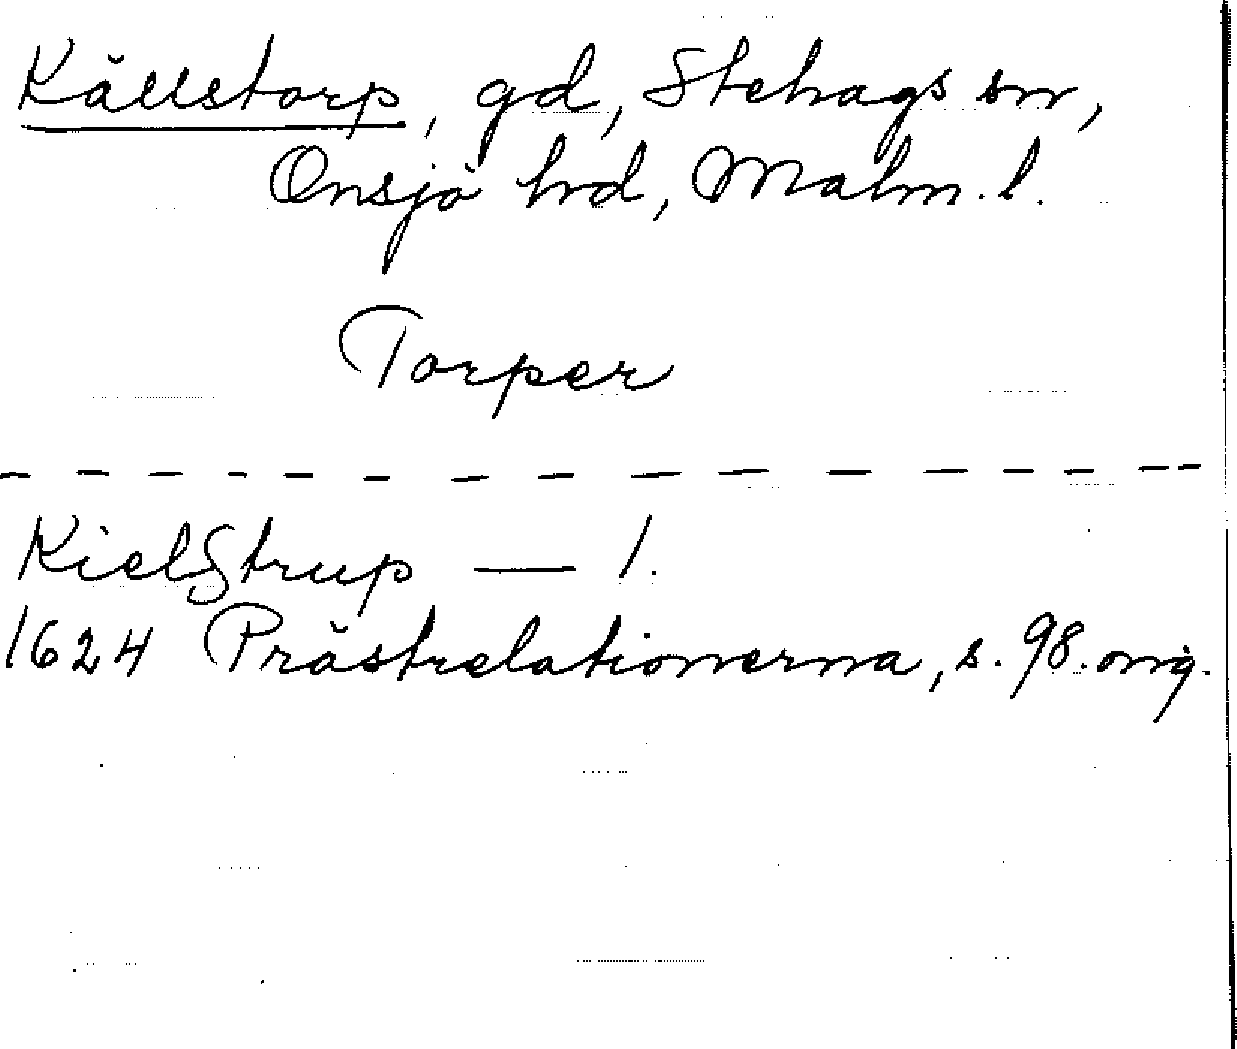 Källstorp, gd, Stehags sn,
Onsjö hrd, Malm. l.
Torper
Kielstrup — 1.
1624 Prästrelationerna, s. 98. orig.